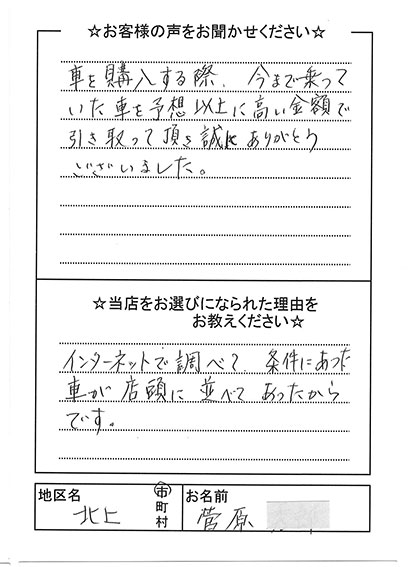 ☆お客様の声をお聞かせください☆
車を購入する際、今まで乗って
いた車を予想以上に高い金額で
引き取って頂き誠にありがとう
ございました。
☆当店をお選びになられた理由を
お教えください☆
インターネットで調べて、条件にあった
車が店頭に並べてあったから
です。
地区名
北上
市
町
村
お名前
菅原